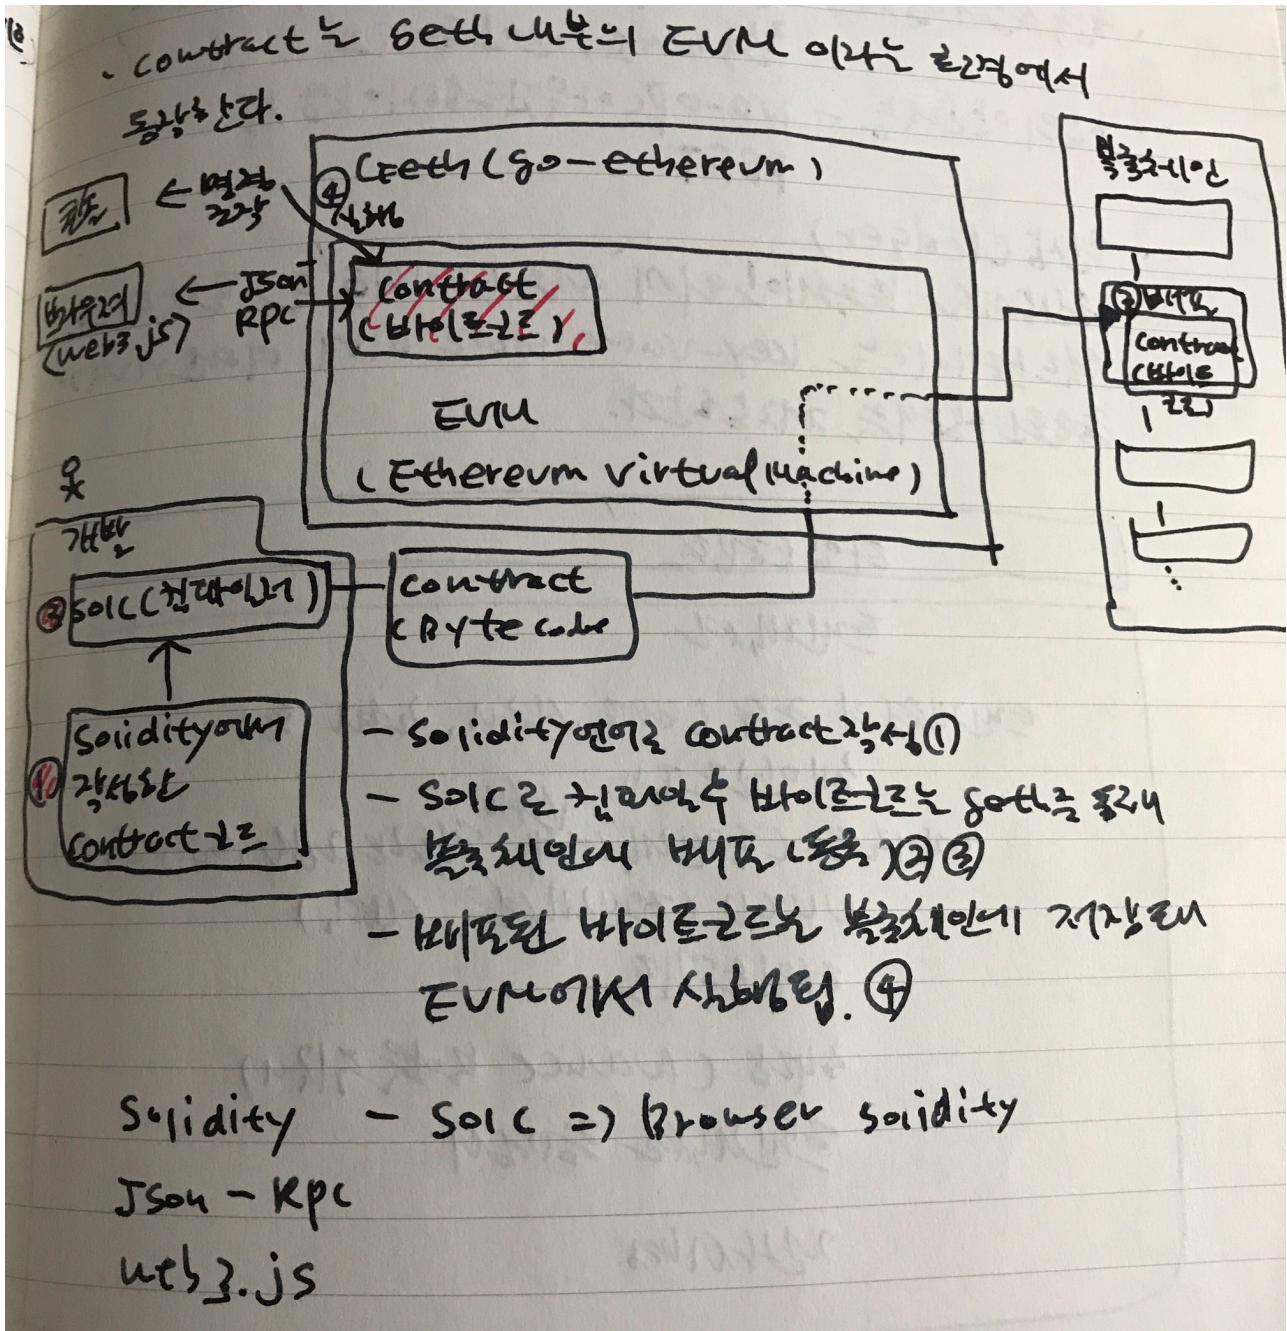 · contract는 Geth 내부의 EVM 이라는 환경에서
동작한다.
콘솔
← 명령
조작
④ Geeth (go-ethereum)
실행
브라우저
(web3.js)
← Json
Rpc
contract
(바이트코드)
EVM
(Ethereum virtual Machine)
블록체인
③ 배포
contract
(바이트
코드)
개발
② solc(컴파일러)
contract
(Byte code
① Solidity에서
작성한
contract 코드
- Solidity언어로 contract작성①
- Solc로 컴파일 후 바이트코드는 geth를 통해
블록체인에 배포 (등록)②③
- 배포된 바이트코드는 블록체인에 저장돼
EVM에서 실행됨. ④
Solidity - Solc => Browser solidity
Json - Rpc
web3.js